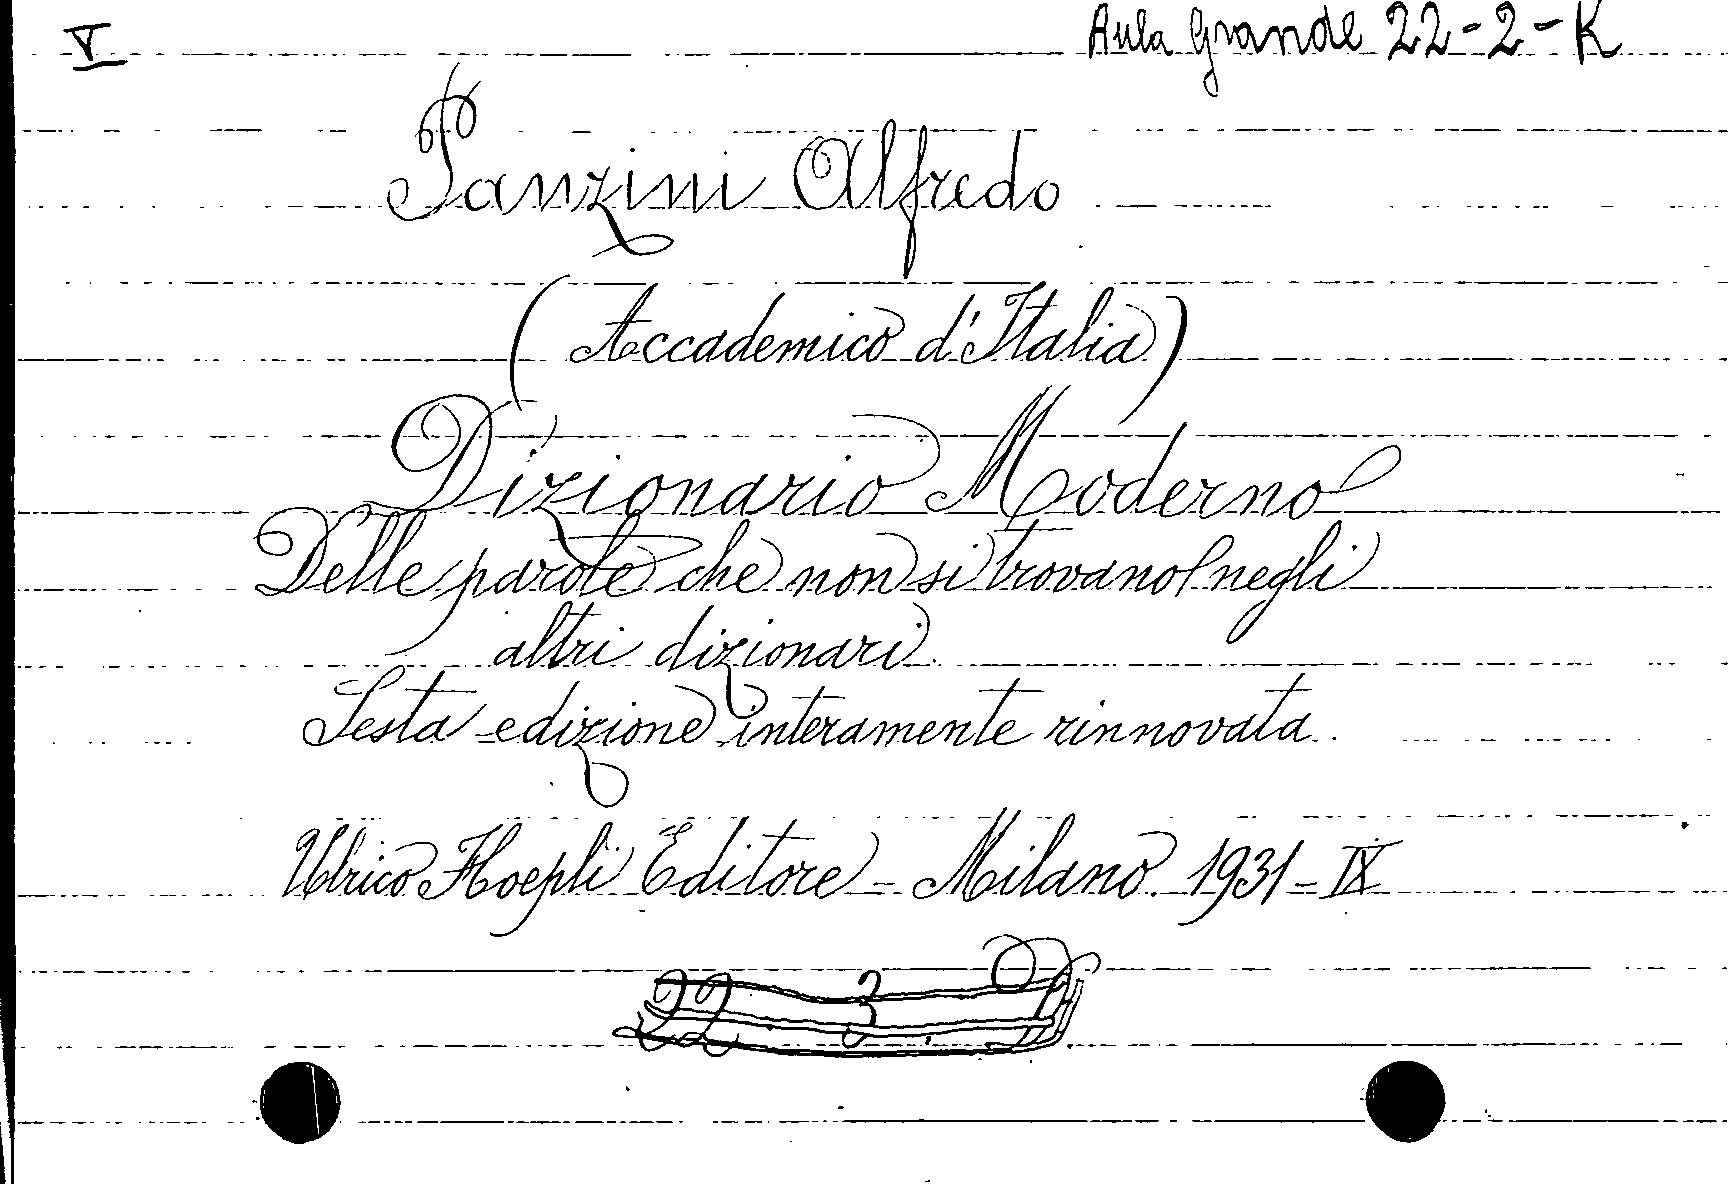 V
Aula Grande 22-2-K
Panzini Alfredo
(Accademico d'Italia)
Dizionario Moderno
Delle parole che non si trovano negli
altri dizionari
Sesta edizione interamente rinnovata.
Ulrico Hoepli Editore - Milano 1931-IX
22 3